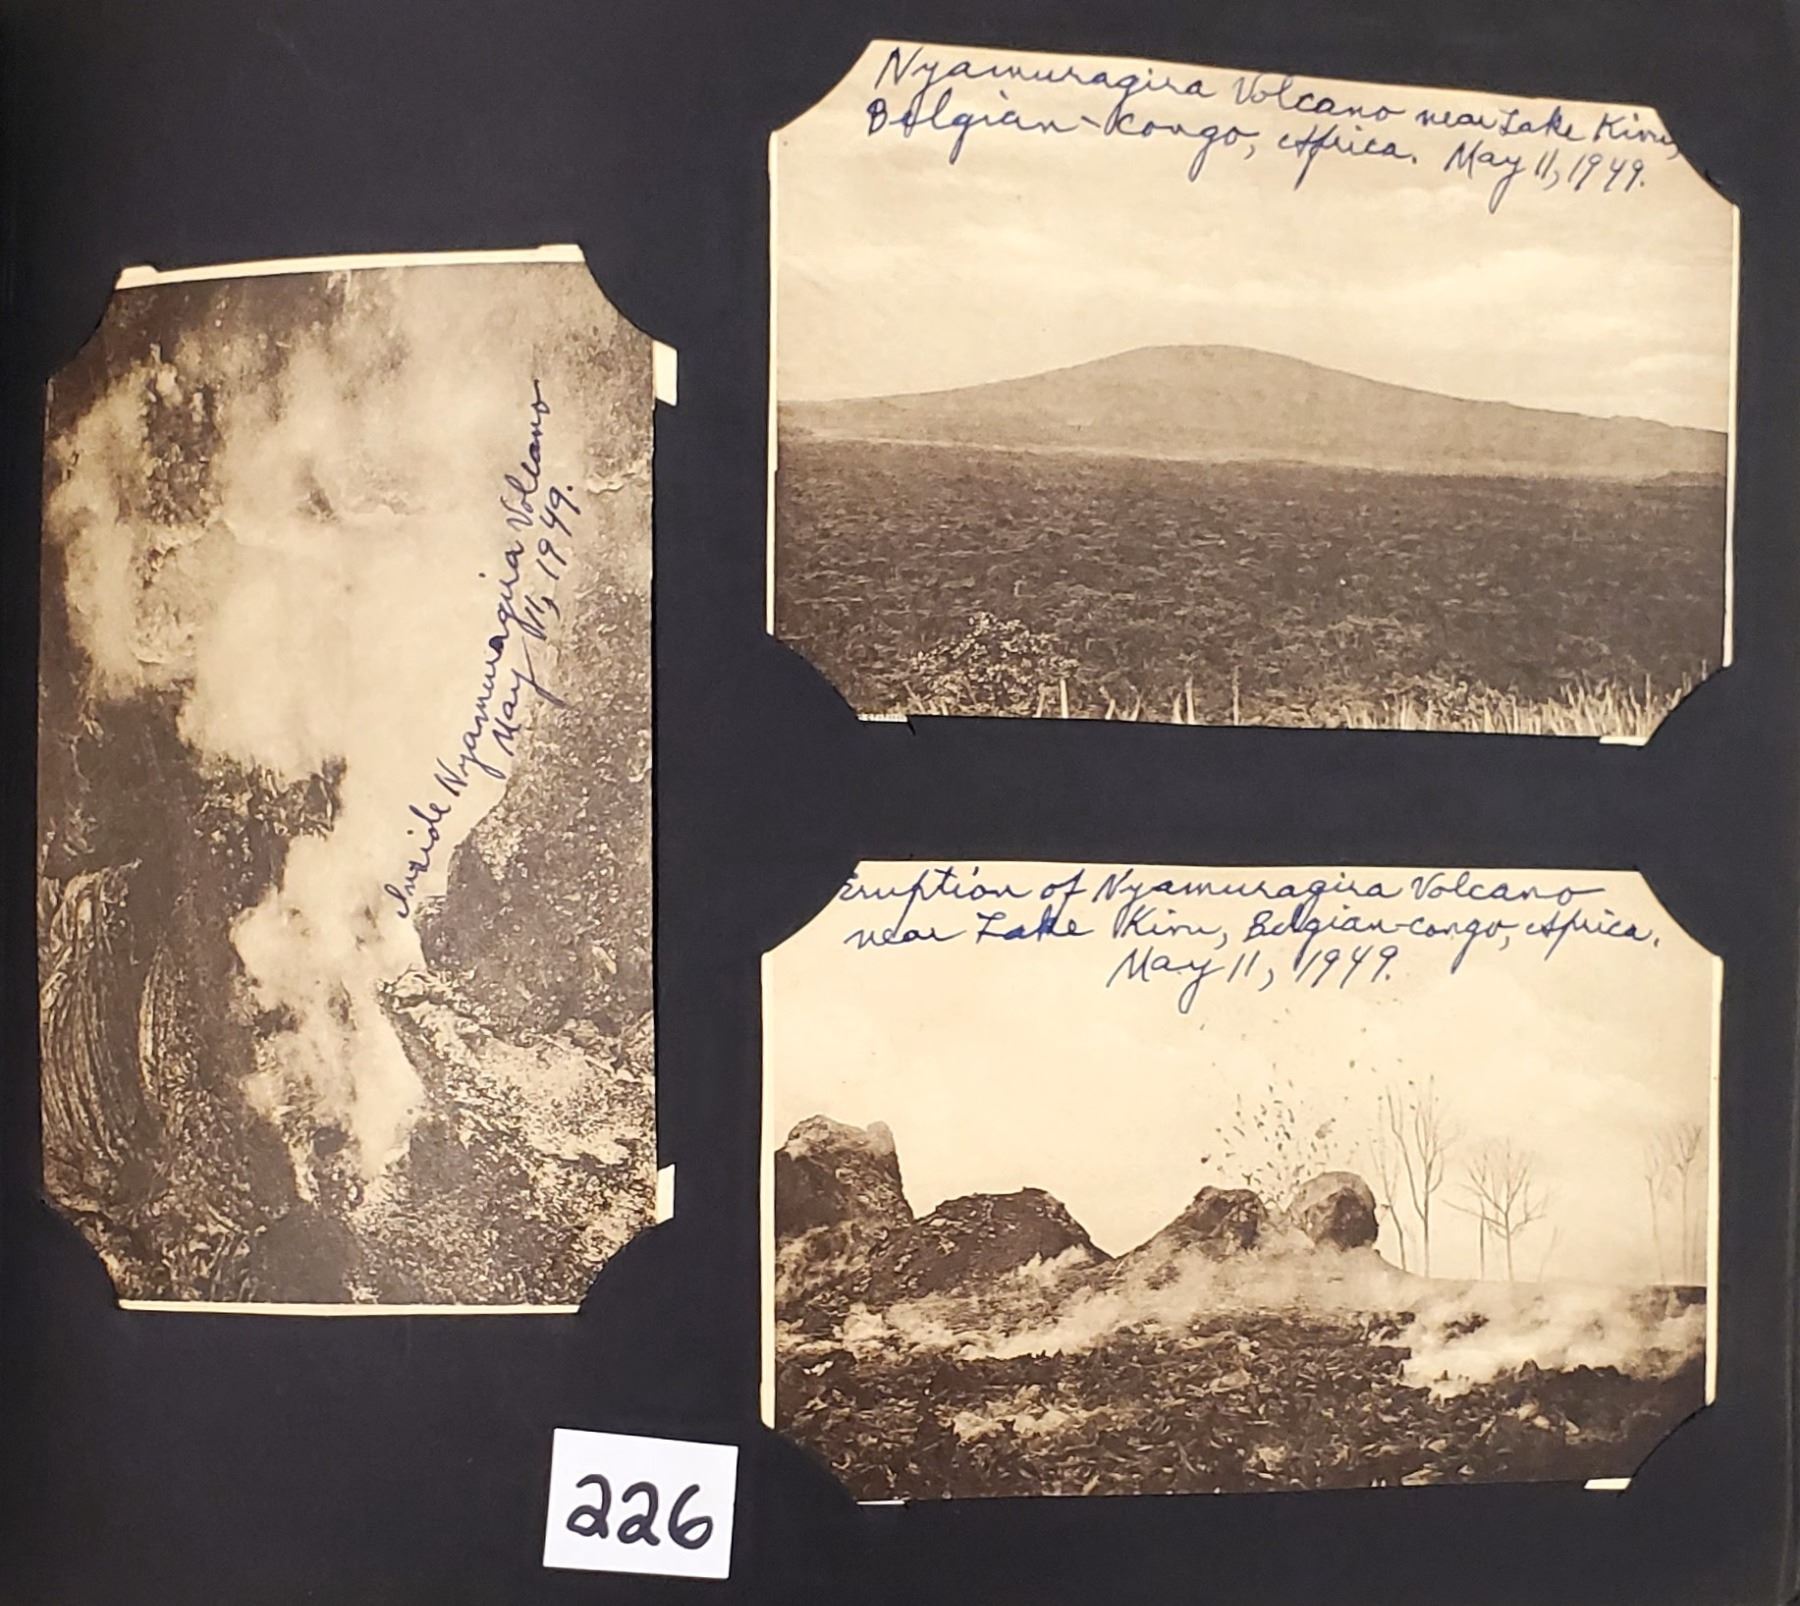 Inside Nyamuragira Volcano
May 11, 1949.
Nyamuragira Volcano near Lake Kivu,
Belgian-Congo, Africa. May 11, 1949.
Eruption of Nyamuragira Volcano
near Lake Kivu, Belgian-Congo, Africa.
May 11, 1949.
226